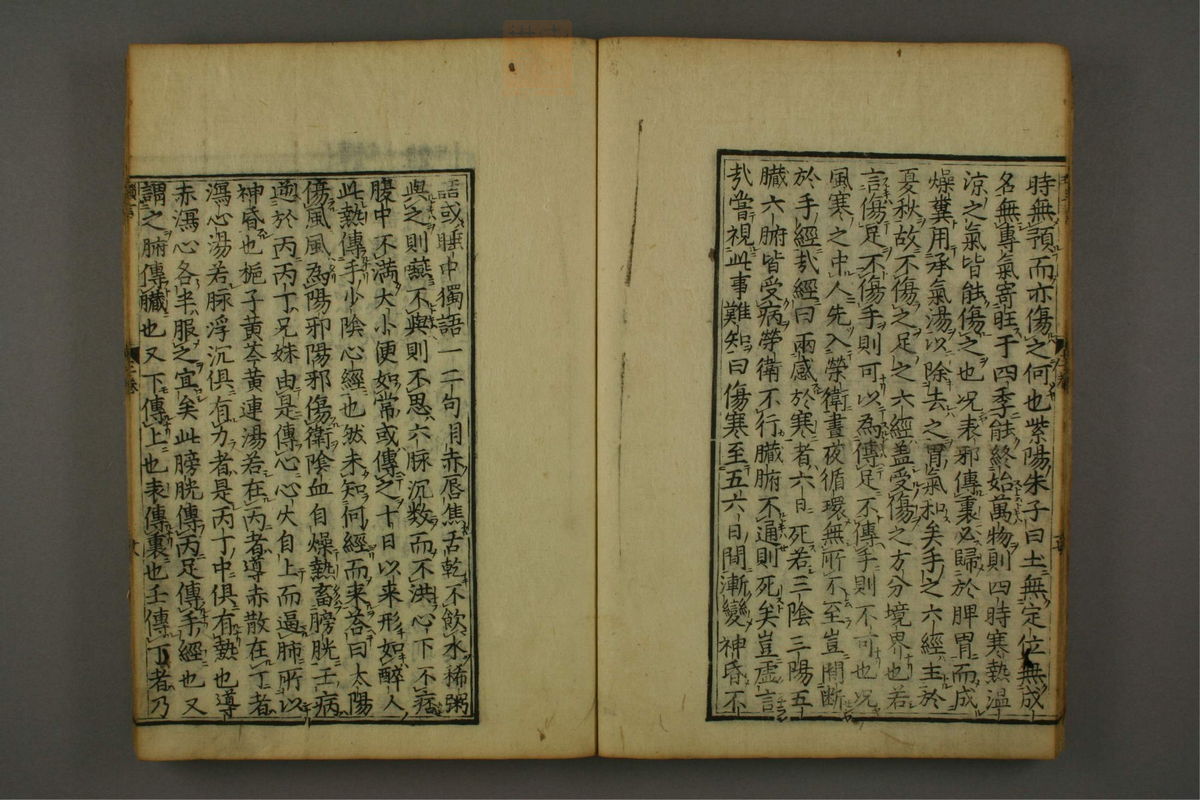 時無預而亦傷之何也紫陽朱子曰土無定位無成
名無專氣寄旺于四季能終始萬物則四時寒熱溫
涼之氣皆能傷之也况表邪傳裏必歸於脾胃而成
燥糞用承氣湯以除去之胃氣和矣手之六經主於
夏秋故不傷之足之六經盖受傷之方分境界也若
言傷足不傷手則可以為傳足不傳手則不可也况
風寒之中人先入榮衛晝夜循環無所不至豈間斷
於手經㢤經曰兩感於寒者六日死若三陰三陽五
臟六腑皆受病榮衛不行臟腑不通則死矣豈虛言
㢤嘗視此事難知曰傷寒至五六日間漸變神昏不
語或睡中獨語一二句目赤唇焦舌乾不飲水稀粥
與之則嚥不與則不思六脉沉数而不洪心下不痞
腹中不滿大小便如常或傳之十日以来形如醉人
此熱傳手少陰心經也然未知何經而来荅曰太陽
傷風風為陽邪陽邪傷衛陰血自燥熱畜膀胱壬病
逆於丙丙丁兄妹由是傳心心火自上而逼肺所以
神昏也梔子黄芩黄連湯若在丙者導赤散在丁者
瀉心湯若脉浮沉俱有力者是丙丁中俱有熱也導
赤瀉心各半服之宜矣此膀胱傳丙足傳手經也又
謂之腑傳臟也又下傳上也表傳裏也壬傳丁者乃